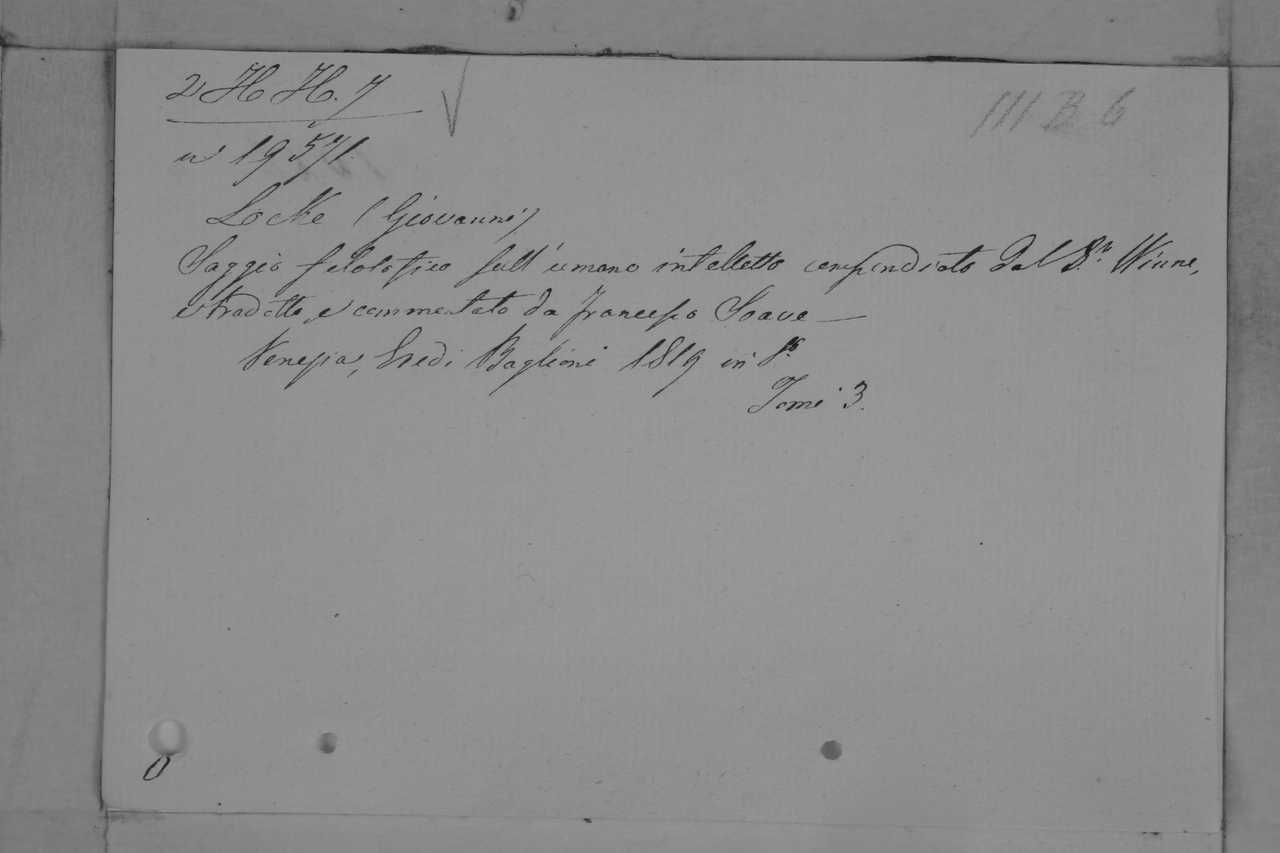 2 H H. 7
III B 6
n 19571.
Locke (Giovanni)
Saggio filosofico sull'umano intelletto compendiato dal Dr. Winne,
tradotto, e commentato da Francesco Soave —
Venezia, Eredi Baglioni 1819 in 8º
Tomi 3.